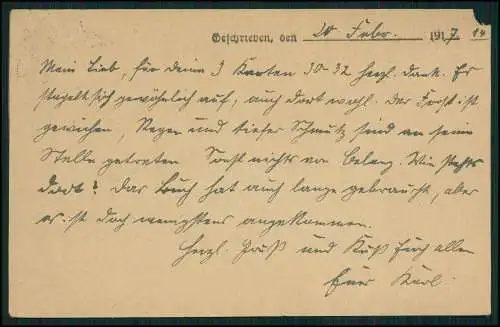 Geschrieben, den 20 Febr. 1917 14
Mein Lieb, für deine 3 Karten 30-32 herzl. Dank. Es
sich gewöhnlich auf, auch dort wohl. Der Frost ist
gewichen, Regen und tiefer Schmutz sind an seine
Stelle getreten. Sonst nichts von Belang. Wie steht's
dort? Das Buch hat auch lange gebraucht, aber
es ist doch wenigstens angekommen.
Herzl. Gruß und Kuß Euch allen
Euer Karl.